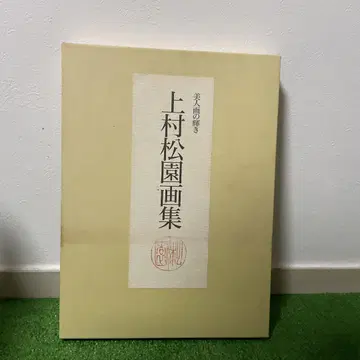 美人画の輝き
上村松園画集